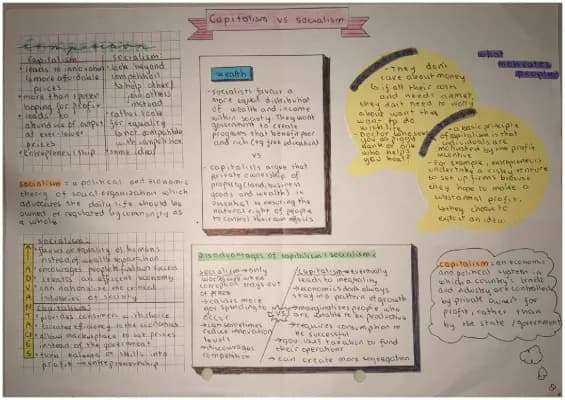 Capitalism vs socialism
Competition
capitalism
leads to innovation
is more affordable
prices
more than 1 person
hoping for profit
leads to
abundance of output
at ever-lower
prices
Entrepreneurship
socialism
look beyond
competition
to help other
instead
rather look
for equality
is not compatible
with competition
same idea
socialism: a political and economic
theory of social organization which
advocates the daily life should be
owned or regulated by community as
a whole.
wealth
socialists favour a
more equal distribution
of wealth and income
within society. They want
government to create
programs that benefit poor
and rich (eg free education)
vs
capitalists argue that
private ownership of
property (land, business
goods and wealth) is
essential ensuring the
natural right of people
to control their own
what
motivates
people
They don't
care about money
if all their costs
and needs met,
they don't need to worry
about want they
want to do
with life
a basic principle
of capitalism is that
individuals are
motivated by the profit
incentive
For example, entrepreneurs
undertake a risky venture
to set up firms because
they hope to make a
substantial profit.
they choose to
exploit an idea
ADVANTAGES
socialism:
focus on equality of humans
instead of wealth separation
encourages people to
creates an efficient economy
can nationalize the critical
industries of society
Capitalism:
provides consumer with choice
creates efficiency in the economics
allow marketplace to set prices
instead of the government
turn talents or skills into
profit → entrepreneurship
disadvantages of capitalism & socialism:
socialism → only
works when
corruption stays out
of place
causes more
gov spending to
occur
can sometimes
reduce motivation
levels
discourages
competition
vs
Capitalism → eventually
leads to inequality
economies always
staying pattern of growth
marginalises people who
are unable to be productive
requires consumption to
be successful
gov uses taxation to fund
their operations
can create more segregation
capitalism: an economic
and political system in
which a country's trade
and industry are controlled
by private owners for
profit, rather than
by the state/government